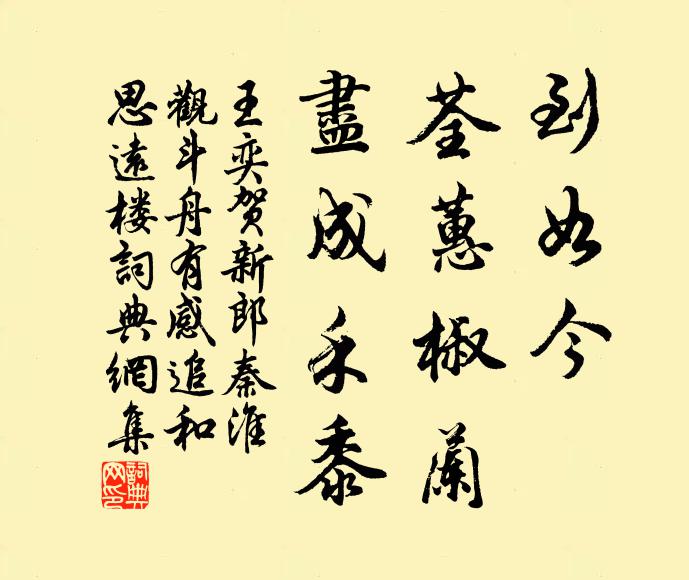 到如今
荃蕙椒蘭
盡成禾黍
王奕賀新郎秦淮
觀斗舟有感追和
思遠楼詞典網集
詞典网印